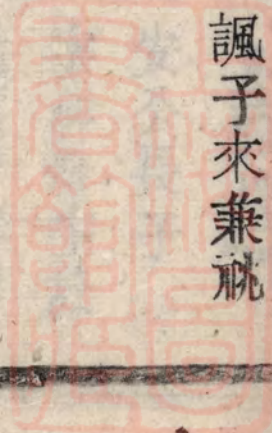 諷子來兼祧